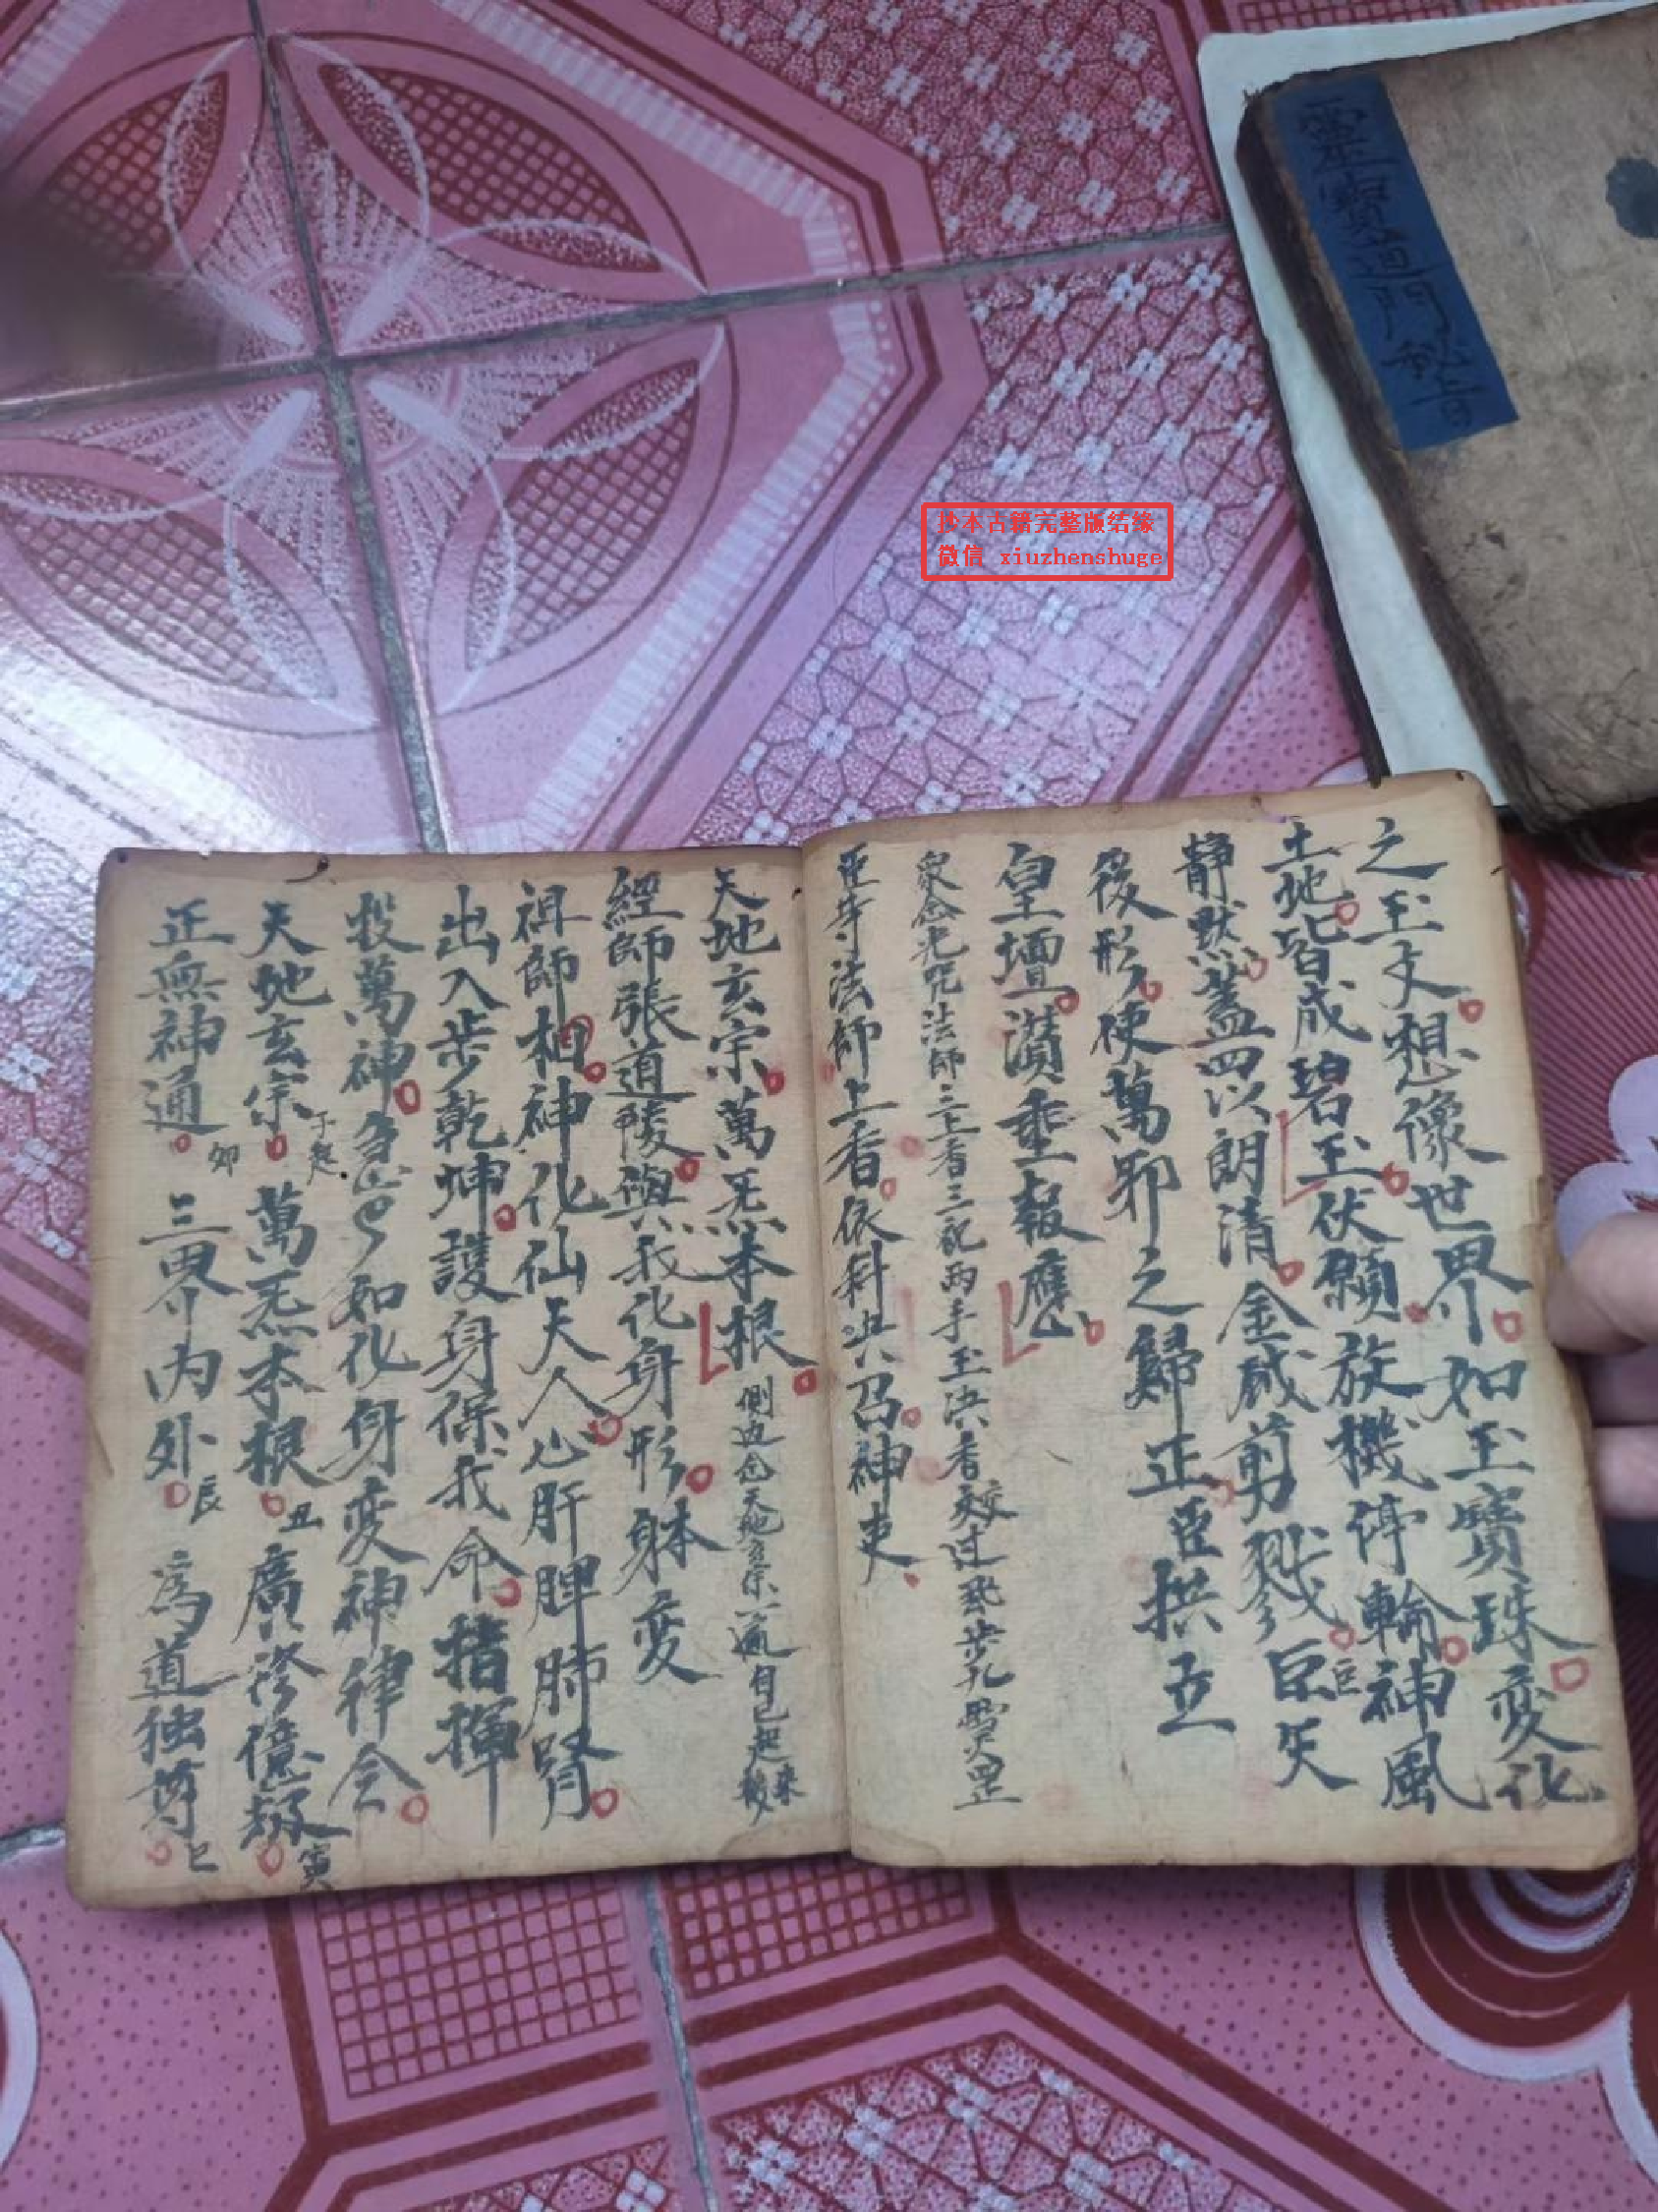 靈寶道門秘旨
抄本古籍完整版结缘
微信 xiuzhenshuge
之玉文想像世界如玉寶珠变化
土地皆成碧玉伏願放機停輪神風
靜默蓋四以朗清金鉞剪戮臣臣矢
後形使萬邪之歸正臣拱立
皇壇瀆垂報應
衆念光咒法師三上香三礼两手玉洪香交过步
臣寺法師上香依科共召神吏
天地玄宗萬炁本根側边念天地玄宗一遍自己起来
經師張道陵與我化身形躰变
祖師柏神化仙天人心肝脾肺腎
出入步乾坤護身保我命指揮
投萬神如化身变神律令
天地玄宗子起萬炁本根丑廣修億劫寅
正無神通卯三界内外辰為道独尊巳